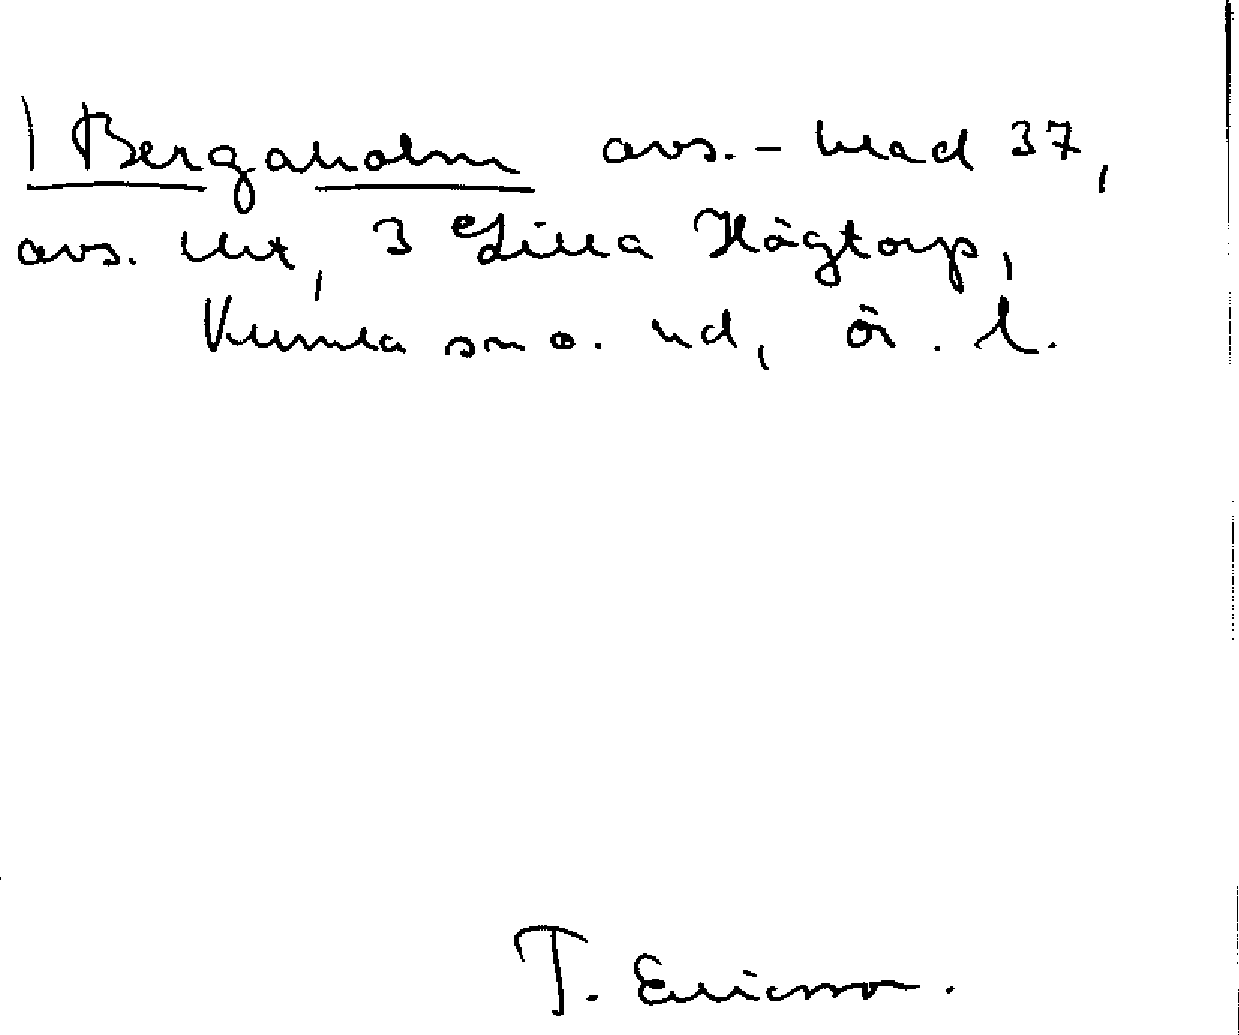 1 Bergaholm avs. - blad 37,
avs. utr, 3 Lilla Högtorp,
Kumla sno. ud, ör. l.
T. Ericsson.